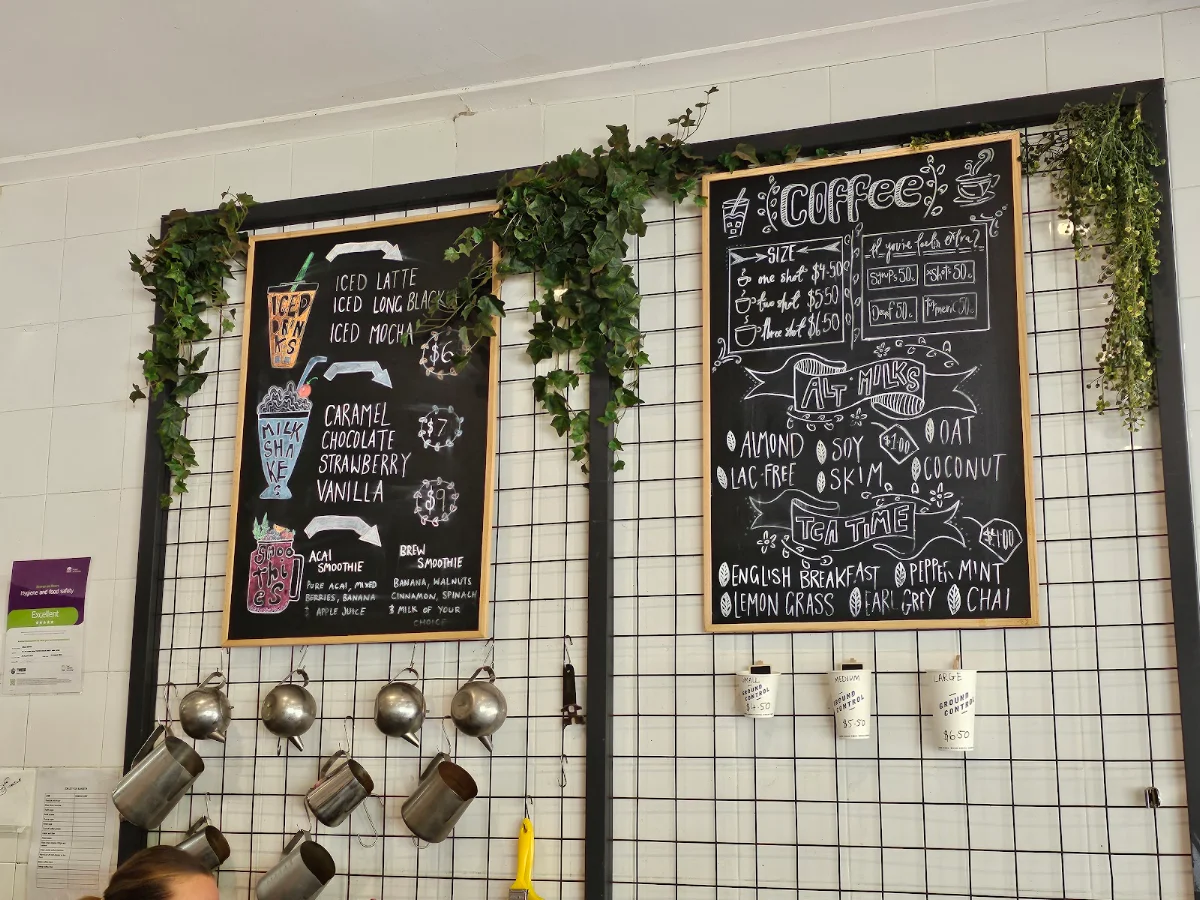 ICED DRINKS
ICED LATTE
ICED LONG BLACK
ICED MOCHA
$6
MILK SHAKES
CARAMEL
CHOCOLATE
STRAWBERRY
VANILLA
$7
$9
Smoothies
ACAI SMOOTHIE
PURE ACAI, MIXED
BERRIES, BANANA
& APPLE JUICE
BREW SMOOTHIE
BANANA, WALNUTS
CINNAMON, SPINACH
& MILK OF YOUR
CHOICE
COFFEE
SIZE
one shot $4.50
two shot $5.50
three shot $6.50
if you're feelin extra?
50c
50c
Decaf 50c
50c
ALT MILKS
$1.00
ALMOND
SOY
OAT
LAC-FREE
SKIM
COCONUT
TEA TIME
$4.00
ENGLISH BREAKFAST
PEPPERMINT
LEMON GRASS
EARL GREY
CHAI
SMALL
GROUND CONTROL
$4.50
MEDIUM
GROUND CONTROL
$5.50
LARGE
GROUND CONTROL
$6.50
Hygiene and food safety
Excellent